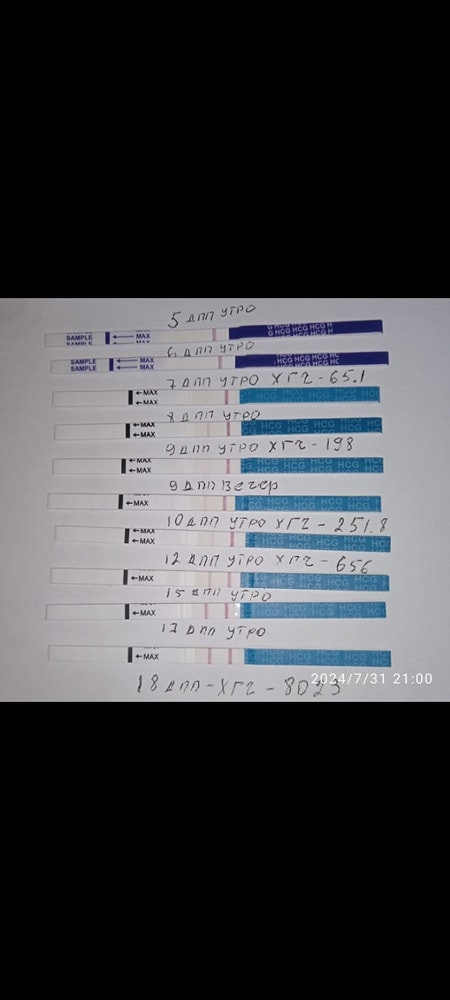 5 ДПП УТРО
G HCG HCG HCG H
SAMPLE MAX
6 ДПП УТРО
SAMPLE MAX
7 ДПП УТРО ХГЧ-65.1
MAX HCG HCG HCG
8 ДПП УТРО
MAX HCG HCG HCG
9 ДПП УТРО ХГЧ-198
MAX HCG HCG HCG
9 ДПП Вечер
MAX HCG HCG HCG
10 ДПП УТРО ХГЧ-251.8
MAX HCG HCG HCG
12 ДПП УТРО ХГЧ-656
MAX HCG HCG HCG
15 ДПП УТРО
MAX HCG HCG HCG
17 ДПП УТРО
MAX HCG HCG HCG
2024/7/31 21:00
18 ДПП-ХГЧ-8023